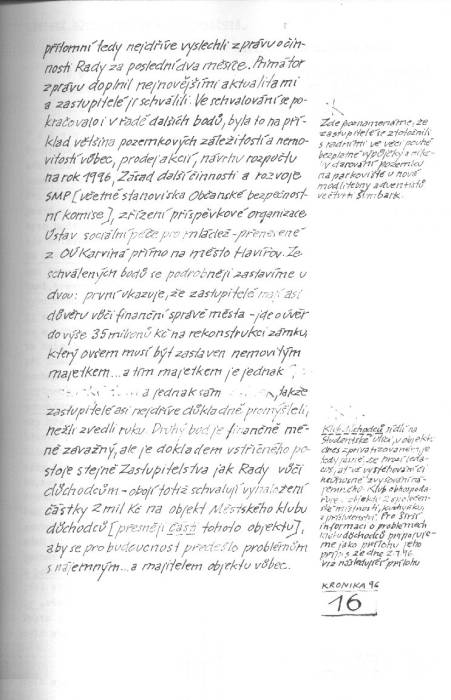 přítomní tedy nejdříve vyslechli zprávu o čin-
nosti Rady za poslední dva měsíce. Primátor
zprávu doplnil nejnovějšími aktualitami
a zastupitelé ji schválili. Ve schvalování se po-
kračovalo i v řadě dalších bodů, byla to na pří-
klad většina pozemkových záležitostí a nemo-
vitostí vůbec, prodej akcií, návrhu rozpočtu
na rok 1996, Zásad další činnosti a rozvoje
SMP [včetně stanoviska Občanské bezpečnost-
ní komise], zřízení příspěvkové organizace
Ústav sociální péče pro mládež - přenesené
z OÚ Karviná přímo na město Havířov. Ze
schválených bodů se podrobněji zastavíme u
dvou: první ukazuje, že zastupitelé mají asi
důvěru vůči finanční správě města - jde o úvěr
do výše 35 milionů Kč na rekonstrukci zámku,
který ovšem musí být zastaven nemovitým
majetkem... a tím majetkem je jednak
a jednak sám takže
zastupitelé asi nejdříve důkladně promýšleli,
nežli zvedli ruku. Druhý bod je finančně mé-
ně závažný, ale je dokladem vstřícného po-
stoje stejně Zastupitelstva jak Rady vůči
důchodcům - obojí totiž schvalují vynaložení
částky 2 mil Kč na objekt Městského klubu
důchodců [přesněji části tohoto objektu],
aby se pro budoucnost předešlo problémům
s nájemným... a majitelem objektu vůbec.
Zde poznamenáme, že
zastupitelé se ztotožnili
s radními ve věci pouhé
bezplatné výpůjčky a nikoli
v darování pozemku
na parkoviště u nové
modlitebny adventistů
ve čtvrti Šumbark.
Klub důchodců sídlí na
Studentské ulici, v objektu
dnes zprivatizovaném, je
tedy jasné, že hrozí leda-
cos, ať už vystěhování či
neúnosné zvyšování ná-
jemného. Klub obhospoda-
řuje v objektu 2 společen-
ské místnosti, kuchyňku,
a příslušenství. Pro širší
informaci o problémech
klubu důchodců připojuje-
me jako přílohu jeho
přípis ze dne 2.1.96
viz následující příloha
KRONIKA 96
16